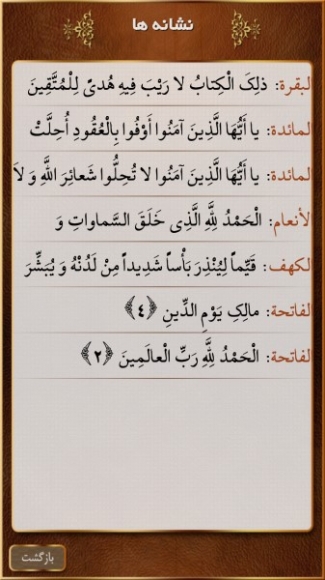 نشانه ها
لبقرة: ذلِکَ الْکِتابُ لا رَیْبَ فِیهِ هُدیً لِلْمُتَّقِینَ
لمائدة: یا أَیُّهَا الَّذِینَ آمَنُوا أَوْفُوا بِالْعُقُودِ أُحِلَّتْ
لمائدة: یا أَیُّهَا الَّذِینَ آمَنُوا لا تُحِلُّوا شَعائِرَ اللَّهِ وَ لاَ
لأنعام: الْحَمْدُ لِلَّهِ الَّذِی خَلَقَ السَّماواتِ وَ
لکهف: قَیِّماً لِیُنْذِرَ بَأْساً شَدِیداً مِنْ لَدُنْهُ وَ یُبَشِّرَ
لفاتحة: مالِکِ یَوْمِ الدِّینِ ﴿٤﴾
لفاتحة: الْحَمْدُ لِلَّهِ رَبِّ الْعالَمِینَ ﴿٢﴾
بازگشت